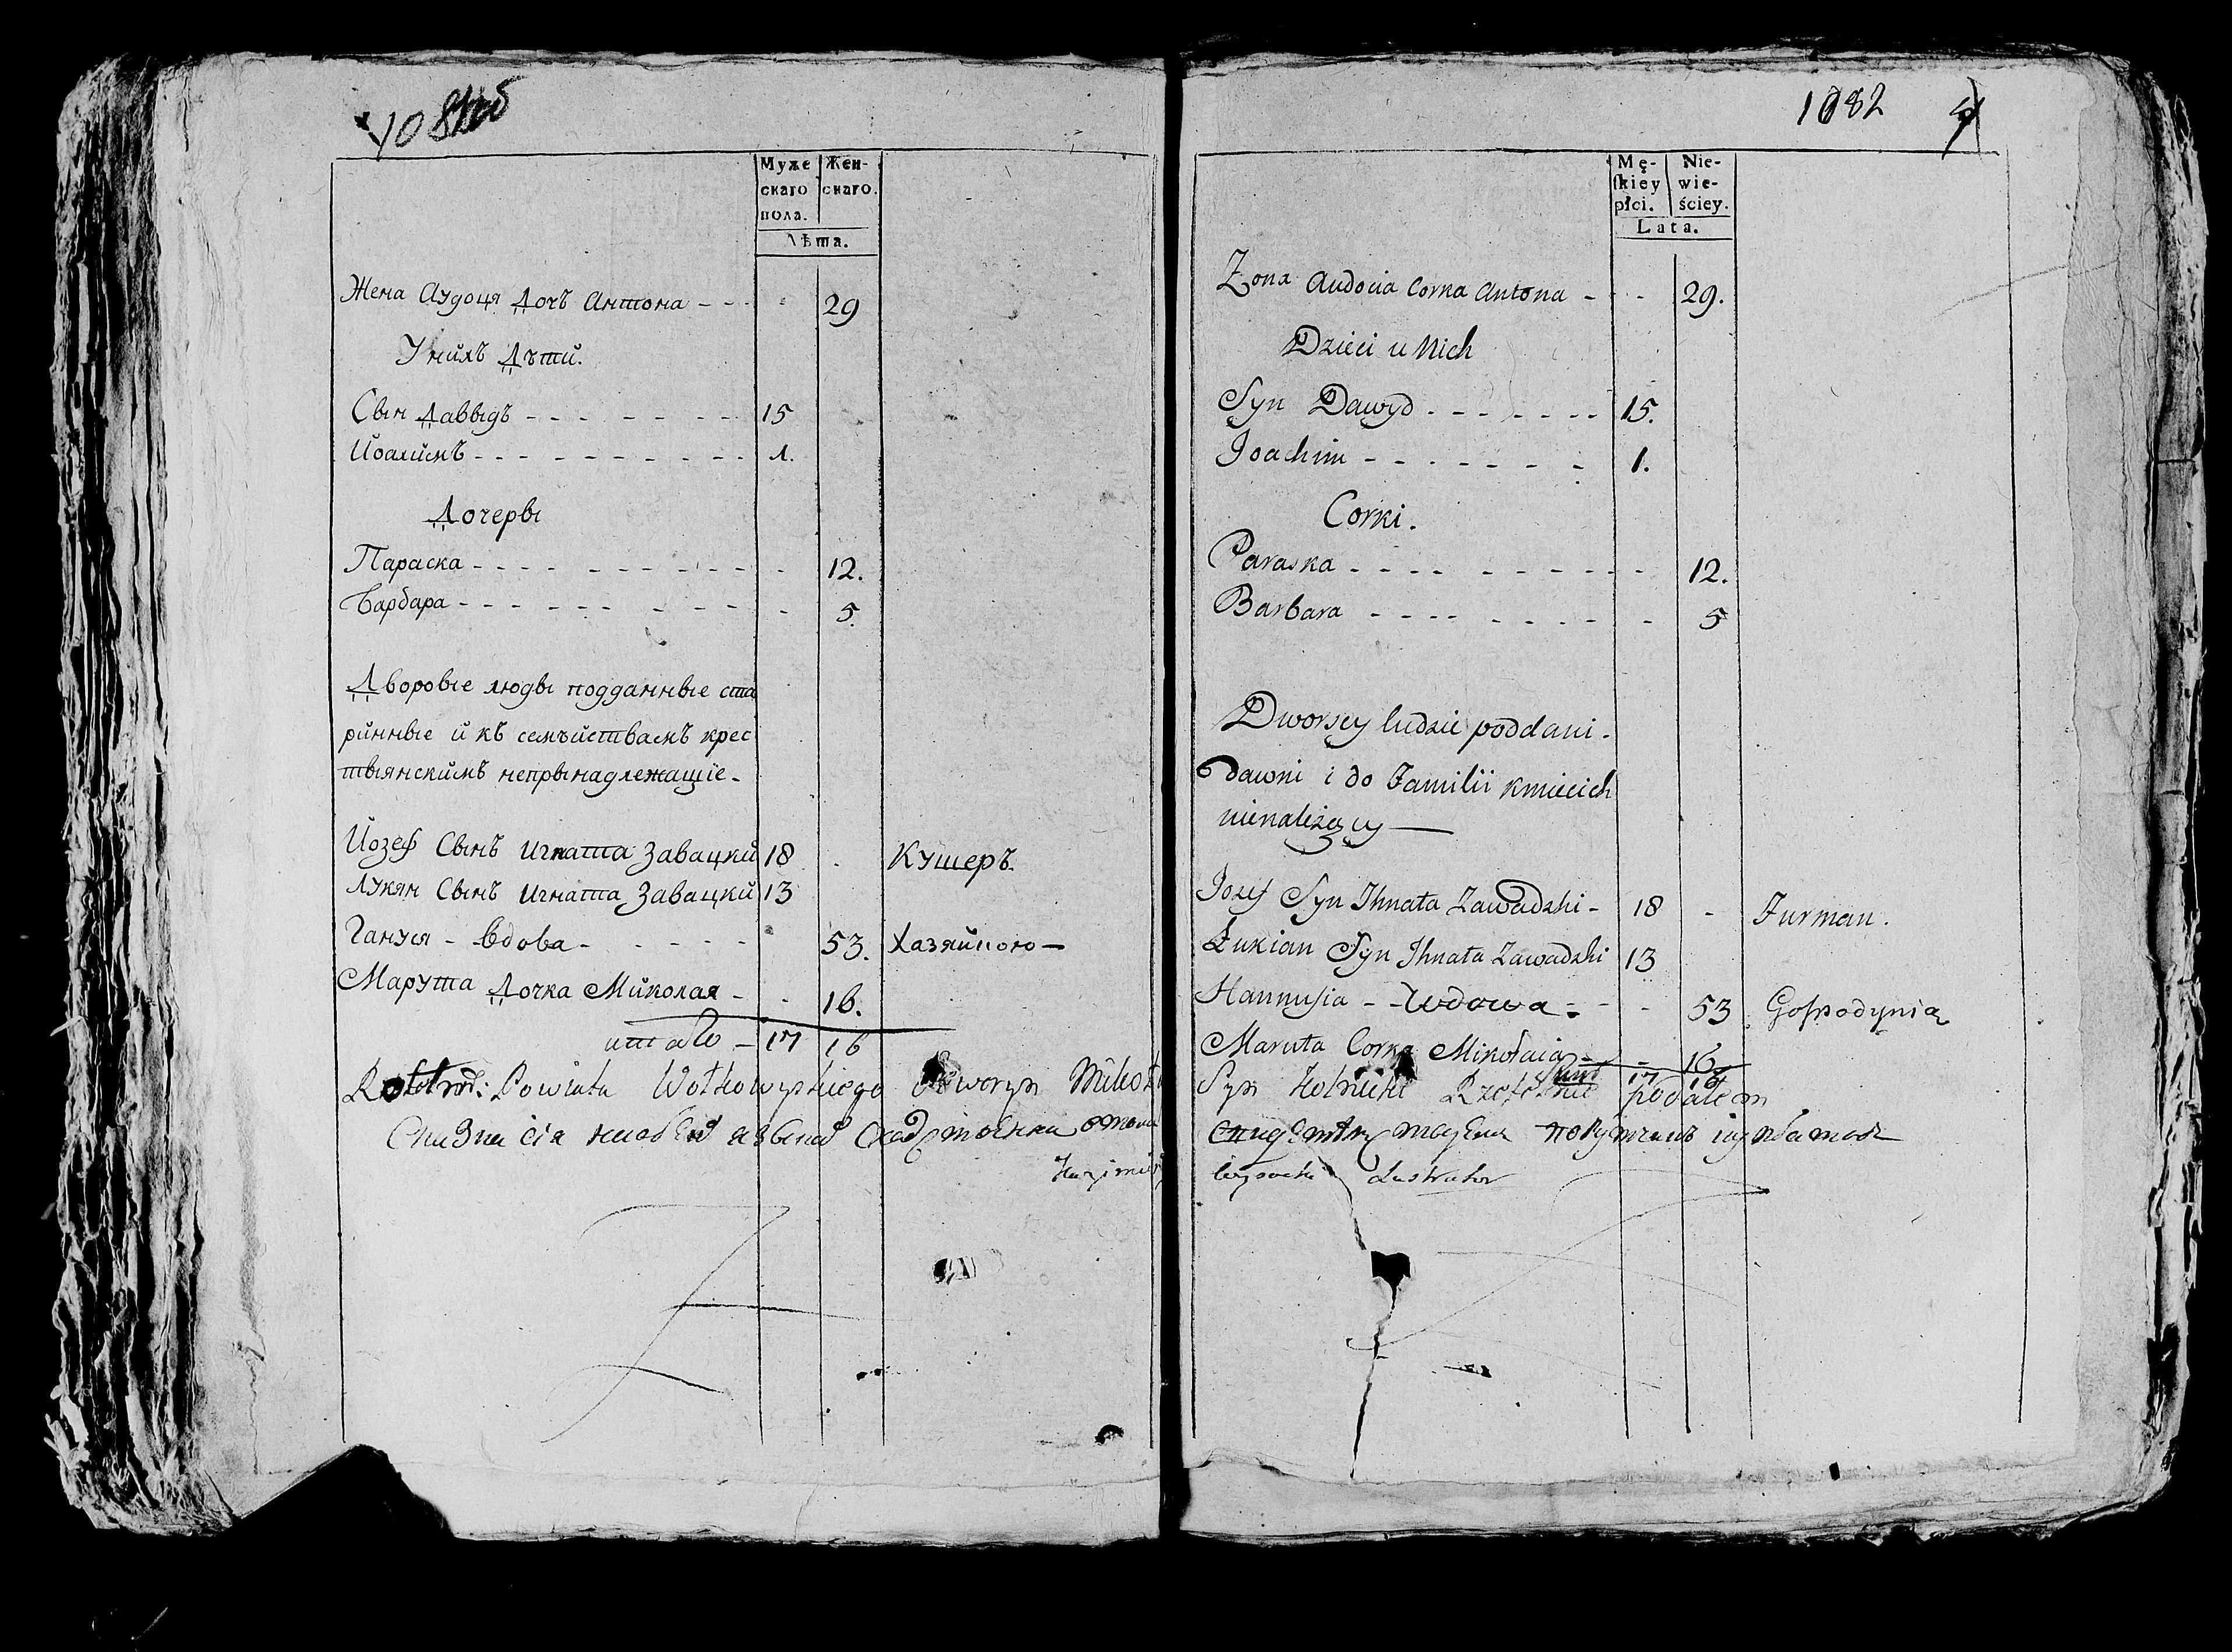 Муже
скаго
пола.
Жен-
скаго.
Лѣта.
Жена Аудоця Дочъ Антона - - - 29
У нихъ Дѣти.
Сын Даввидъ - - - - - - 15
Йоахимъ - - - - - - - - - 1.
Дочеры
Параска - - - - - - - - - - 12.
Барбара - - - - - - - - - - 5.
Дворовые людзы подданные ста
ринные и къ семъйствамъ крес
тьянскимъ непрынадлежащіе -
Йозеф Сынъ Игната Завацки 18 - Кушеръ.
Лукян Сынъ Игната Завацки 13
Гануся - вдова - - - - - 53. Хазяйного -
Марута Дочка Миколая - - 16.
итаго - 17 16
Powiatu Wołkowyskiego
1082
Mę-
skiey
płci.
Nie-
wie-
ściey.
Lata.
Zona Audocia Corka Antona - - - 29.
Dzieci u Nich
Syn Dawyd - - - - - - - 15.
Joachim - - - - - - - 1.
Corki.
Paraska - - - - - - - - - 12.
Barbara - - - - - - - - - 5
Dworscy ludzie poddani.
dawni i do Familii kmiecich
nienależący —
Jozef Syn Ihnata Zawadzki - 18 - Furman.
Łukian Syn Ihnata Zawadzki 13
Hannusia - - Wdowa - - - 53 Gospodynią
Maruta Corka Mikołaia - - 16
17 16
Syn podałem
Lustrator